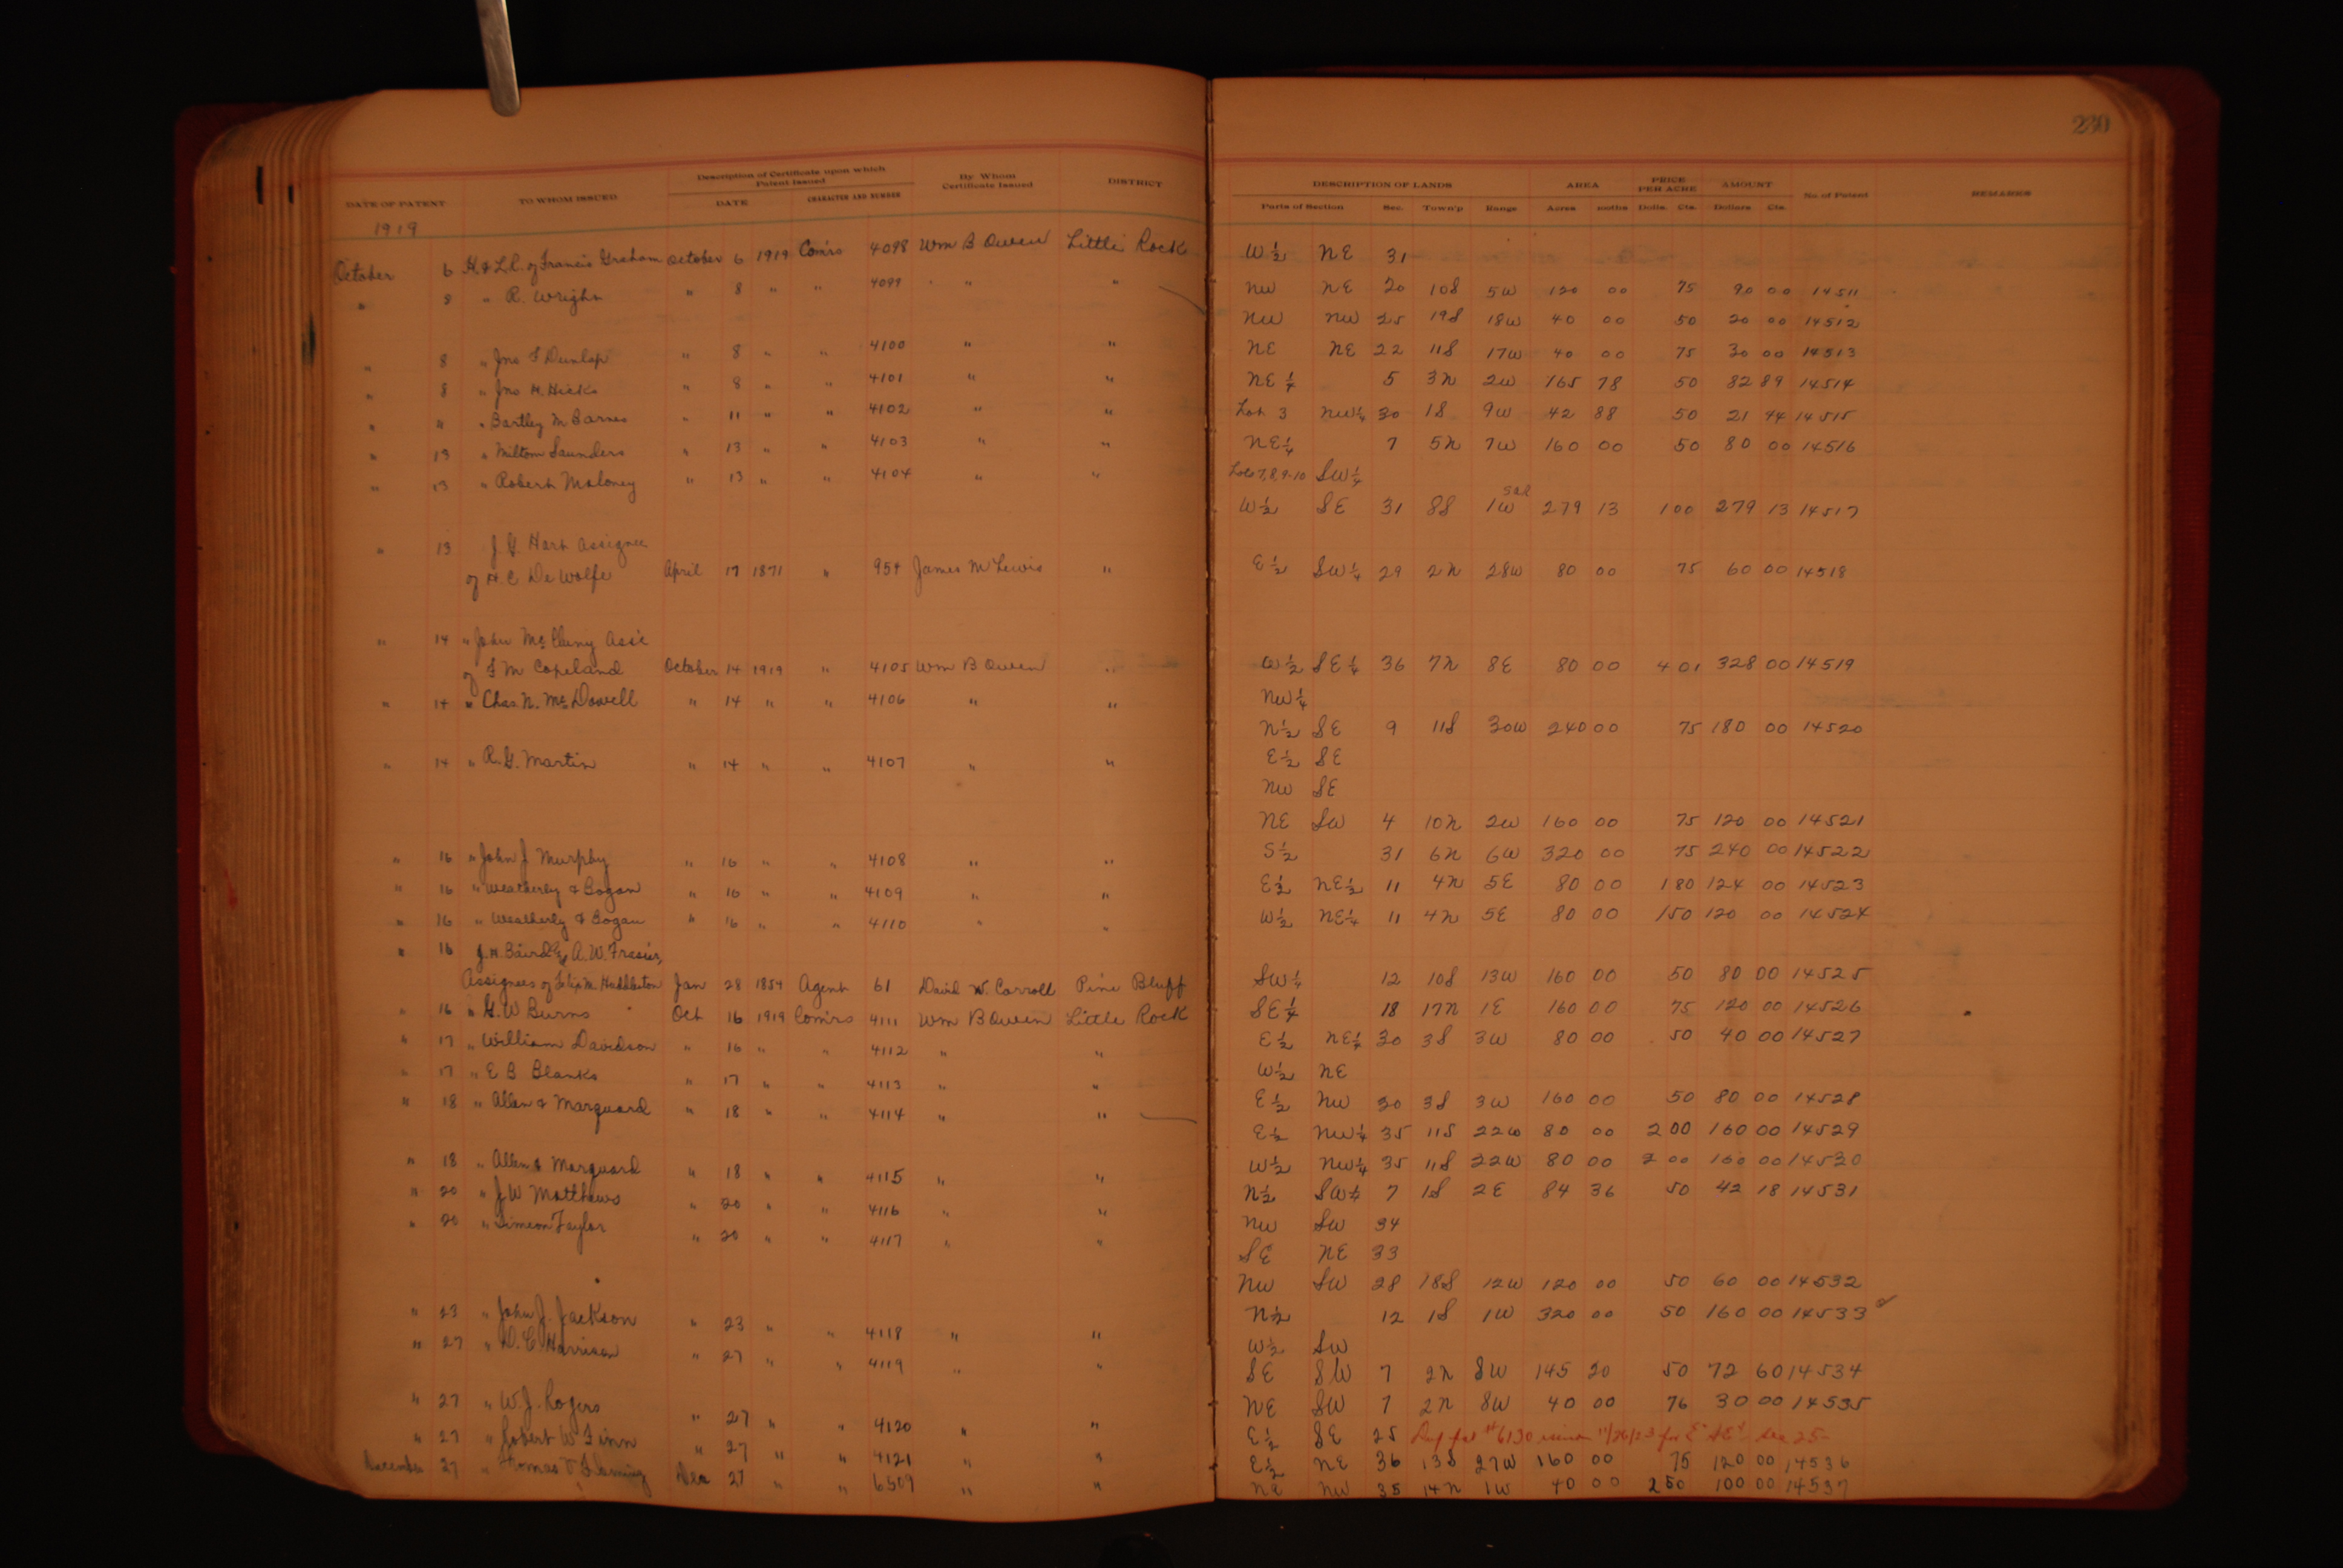 230
Description of Certificate upon which Patent Issued
DATE OF PATENT TO WHOM ISSUED DATE CHARACTER AND NUMBER By Whom Certificate Issued DISTRICT
1919
October 6 H. & L.R. of Francis Graham October 6 1919 Com'rs 4098 Wm B Owen Little Rock
" 8 " R. Wright " 8 " " 4099 " "
" 8 " Jno F Dunlap " 8 " " 4100 " "
" 8 " Jno H. Hicks " 8 " " 4101 " "
" " " Bartley M Barnes " 11 " " 4102 " "
" 13 " Milton Saunders " 13 " " 4103 " "
" 13 " Robert Maloney " 13 " " 4104 " "
" 13 Hart Assignee
of H. C De Wolfe April 17 1871 " 954 James M Lewis "
" 14 " John McCluny Ass'e
of F M Copeland October 14 1919 " 4105 Wm B Owen "
" 14 " Chas. N. McDowell " 14 " " 4106 " "
" 14 " R. G. Martin " 14 " " 4107 " "
" 16 " John J Murphy " 16 " " 4108 " "
" 16 " Weatherly & Bogan " 16 " " 4109 " "
" 16 " Weatherly & Bogan " 16 " " 4110 " "
" 16 J. H. Baird & A. W. Frasier,
Assignees of Felix M. Huddleston Jan 28 1854 Agent 61 David W. Carroll Pine Bluff
" 16 " G. W Burns Oct 16 1919 Com'rs 4111 Wm B Owen Little Rock
" 17 " William Davidson " 16 " " 4112 " "
" 17 " E B Blanks " 17 " " 4113 " "
" 18 " Allen & Marquard " 18 " " 4114 " "
" 18 " Allen & Marquard " 18 " " 4115 " "
" 20 " J W Matthews " 20 " " 4116 " "
" 20 " Simeon Taylor " 20 " " 4117 " "
" 23 " John J. Jackson " 23 " " 4118 " "
" 27 " D. C. Harrison " 27 " " 4119 " "
" 27 " W. J. Rogers " 27 " " 4120 " "
" 27 " Robert W Finn " 27 " " 4121 " "
December 27 " Thomas Fleming Dec 27 " " 6509 " "
DESCRIPTION OF LANDS AREA PRICE PER ACRE AMOUNT No of Patent REMARKS
Parts of Section Sec. Town'p Range Acres Dolls. Cts. Dollars Cts.
W½ NE 31
NW NE 20 10S 5W 120 00 75 90 00 14511
NW NW 25 19S 18W 40 00 50 20 00 14512
NE NE 22 11S 17W 40 00 75 30 00 14513
NE¼ 5 3N 2W 165 78 50 82 89 14514
Lot 3 NW¼ 30 1S 9W 42 88 50 21 44 14515
NE¼ 7 5N 7W 160 00 50 80 00 14516
Lots 7,8,9-10 SW¼
W½ SE 31 8S 1W 279 13 1 00 279 13 14517
E½ SW¼ 29 2N 28W 80 00 75 60 00 14518
W½ SE¼ 36 7N 8E 80 00 4 01 328 00 14519
NW¼
N½ SE 9 11S 30W 240 00 75 180 00 14520
E½ SE
NW SE
NE SW 4 10N 2W 160 00 75 120 00 14521
S½ 31 6N 6W 320 00 75 240 00 14522
E½ NE½ 11 4N 5E 80 00 1 80 124 00 14523
W½ NE¼ 11 4N 5E 80 00 1 50 120 00 14524
SW¼ 12 10S 13W 160 00 50 80 00 14525
SE¼ 18 17N 1E 160 00 75 120 00 14526
E½ NE¼ 30 3S 3W 80 00 50 40 00 14527
W½ NE
E½ NW 30 3S 3W 160 00 50 80 00 14528
E½ NW¼ 35 11S 22W 80 00 2 00 160 00 14529
W½ NW¼ 35 11S 22W 80 00 2 00 160 00 14530
N½ SW¼ 7 1S 2E 84 36 50 42 18 14531
NW SW 34
SE NE 33
NW SW 28 18S 12W 120 00 50 60 00 14532
N½ 12 1S 1W 320 00 50 160 00 14533
W½ SW
SE SW 7 2N 8W 145 20 50 72 60 14534
NE SW 7 2N 8W 40 00 76 30 00 14535
E½ SE 25 #6130 11/26/23 for Sec 25
E½ NE 36 13S 27W 160 00 75 120 00 14536
NE NW 35 14N 1W 40 00 2 50 100 00 14537